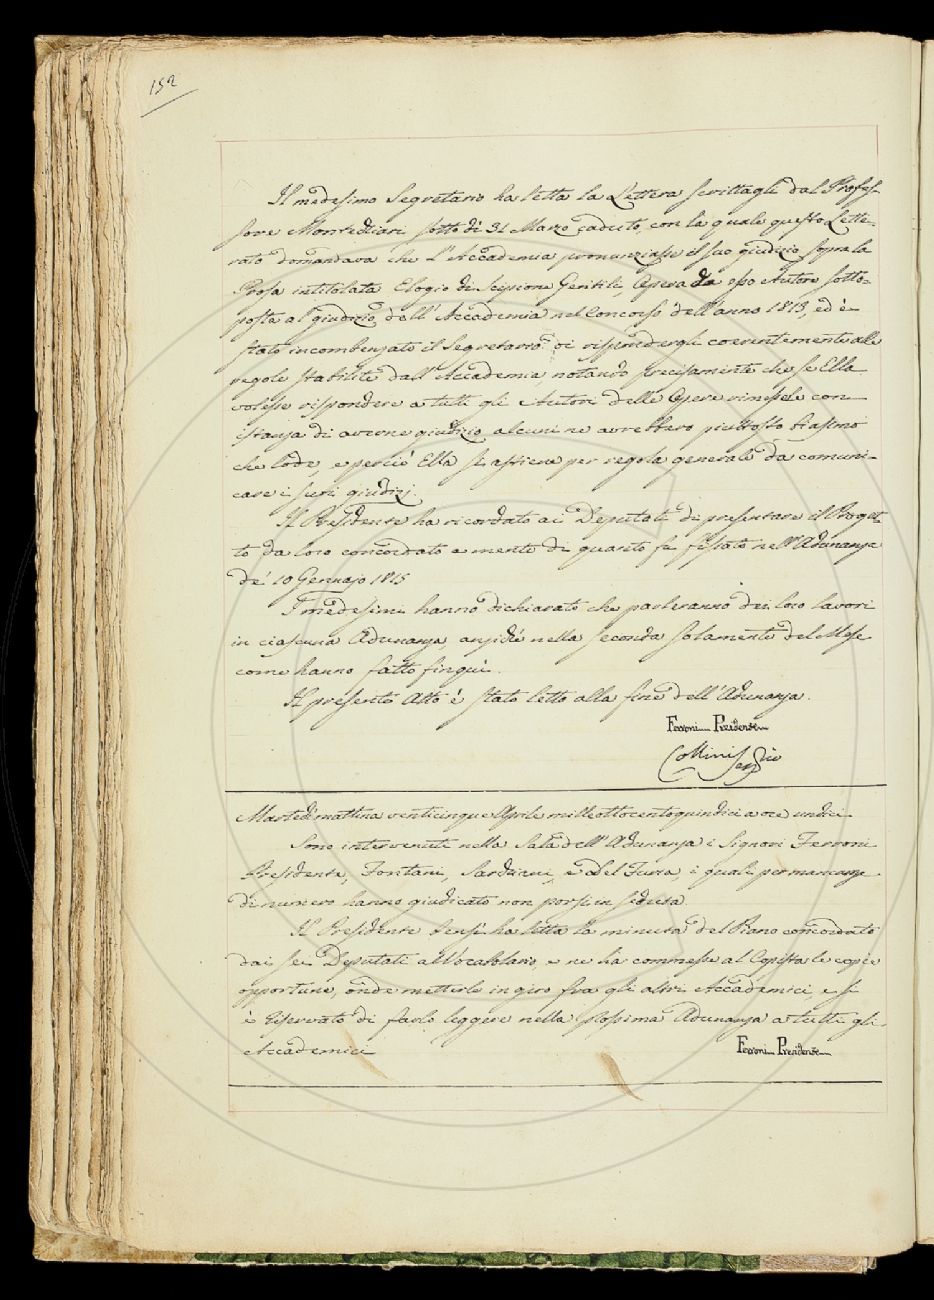 152
Il medesimo Segretario ha letta la Lettera scrittagli dal Profes-
sore Montechiari sotto dì 31 Marzo caduto, con la quale questo Lette-
rato domandava che l'Accademia pronunziasse il suo giudizio sopra la
Prosa intitolata Elogio di Scipione Gentili, Opera da esso Autore sotto-
posta al giudizio dell'Accademia nel Concorso dell'anno 1813, ed è
stato incombenzato il Segretario di rispondergli coerentemente alle
regole stabilite dall'Accademia, notando precisamente che se Ella
volesse rispondere a tutti gli Autori delle Opere rimessele con
istanza di averne giudizio alcuni ne avrebbero piuttosto biasimo
che lode, e perciò Ella si astiene per regola generale da comuni-
care i suoi giudizj.
Il Presidente ha ricordato ai Deputati di presentare il Proget-
to da loro concordato a mente di quanto fu fissato nell'Adunanza
de' 10 Gennajo 1815
I medesimi hanno dichiarato che parleranno dei loro lavori
in ciascuna Adunanza, anziché nella seconda solamente del Mese
come hanno fatto finquì.
Il presente Atto è stato letto alla fine dell'Adunanza.
Ferroni Presidente
Collini Segrio
Martedì mattina venticinque Aprile milleottocentoquindici a ore undici
Sono intervenuti nella Sala dell'Adunanza i Signori Ferroni
Presidente, Fontani, Sarchiani, e Del Furia, i quali per mancanza
di numero hanno giudicato non porsi in seduta
Il Presidente ha letta la minuta del Piano concordato
dai sei Deputati al Vocabolario, e ne ha commesse al Copista le copie
opportune, onde metterle in giro fra gli altri Accademici, e si
è riservato di farlo leggere nella prossima Adunanza a tutti gli
Accademici
Ferroni Presidente